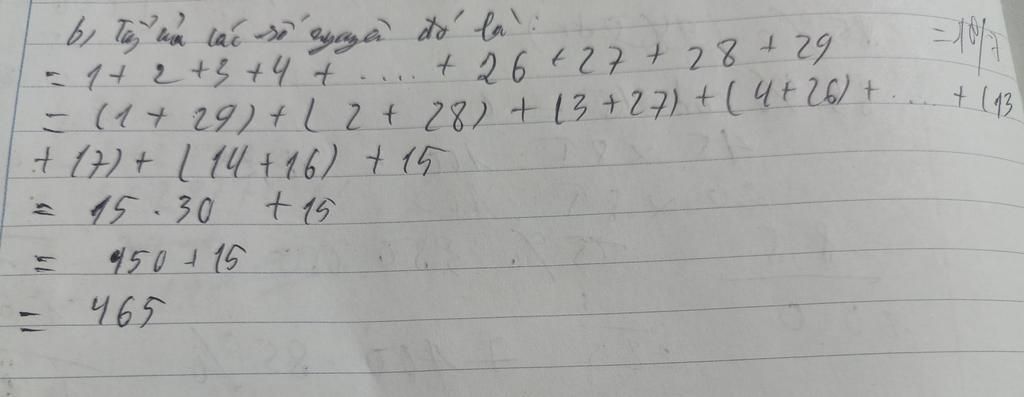 b, Tổng của các số nguyên đó là:
= 1 + 2 + 3 + 4 + .... + 26 + 27 + 28 + 29
= (1 + 29) + ( 2 + 28) + (3 + 27) + ( 4 + 26) + .... + (13
+ 17) + ( 14 + 16) + 15
= 15 . 30 + 15
= 450 + 15
= 465